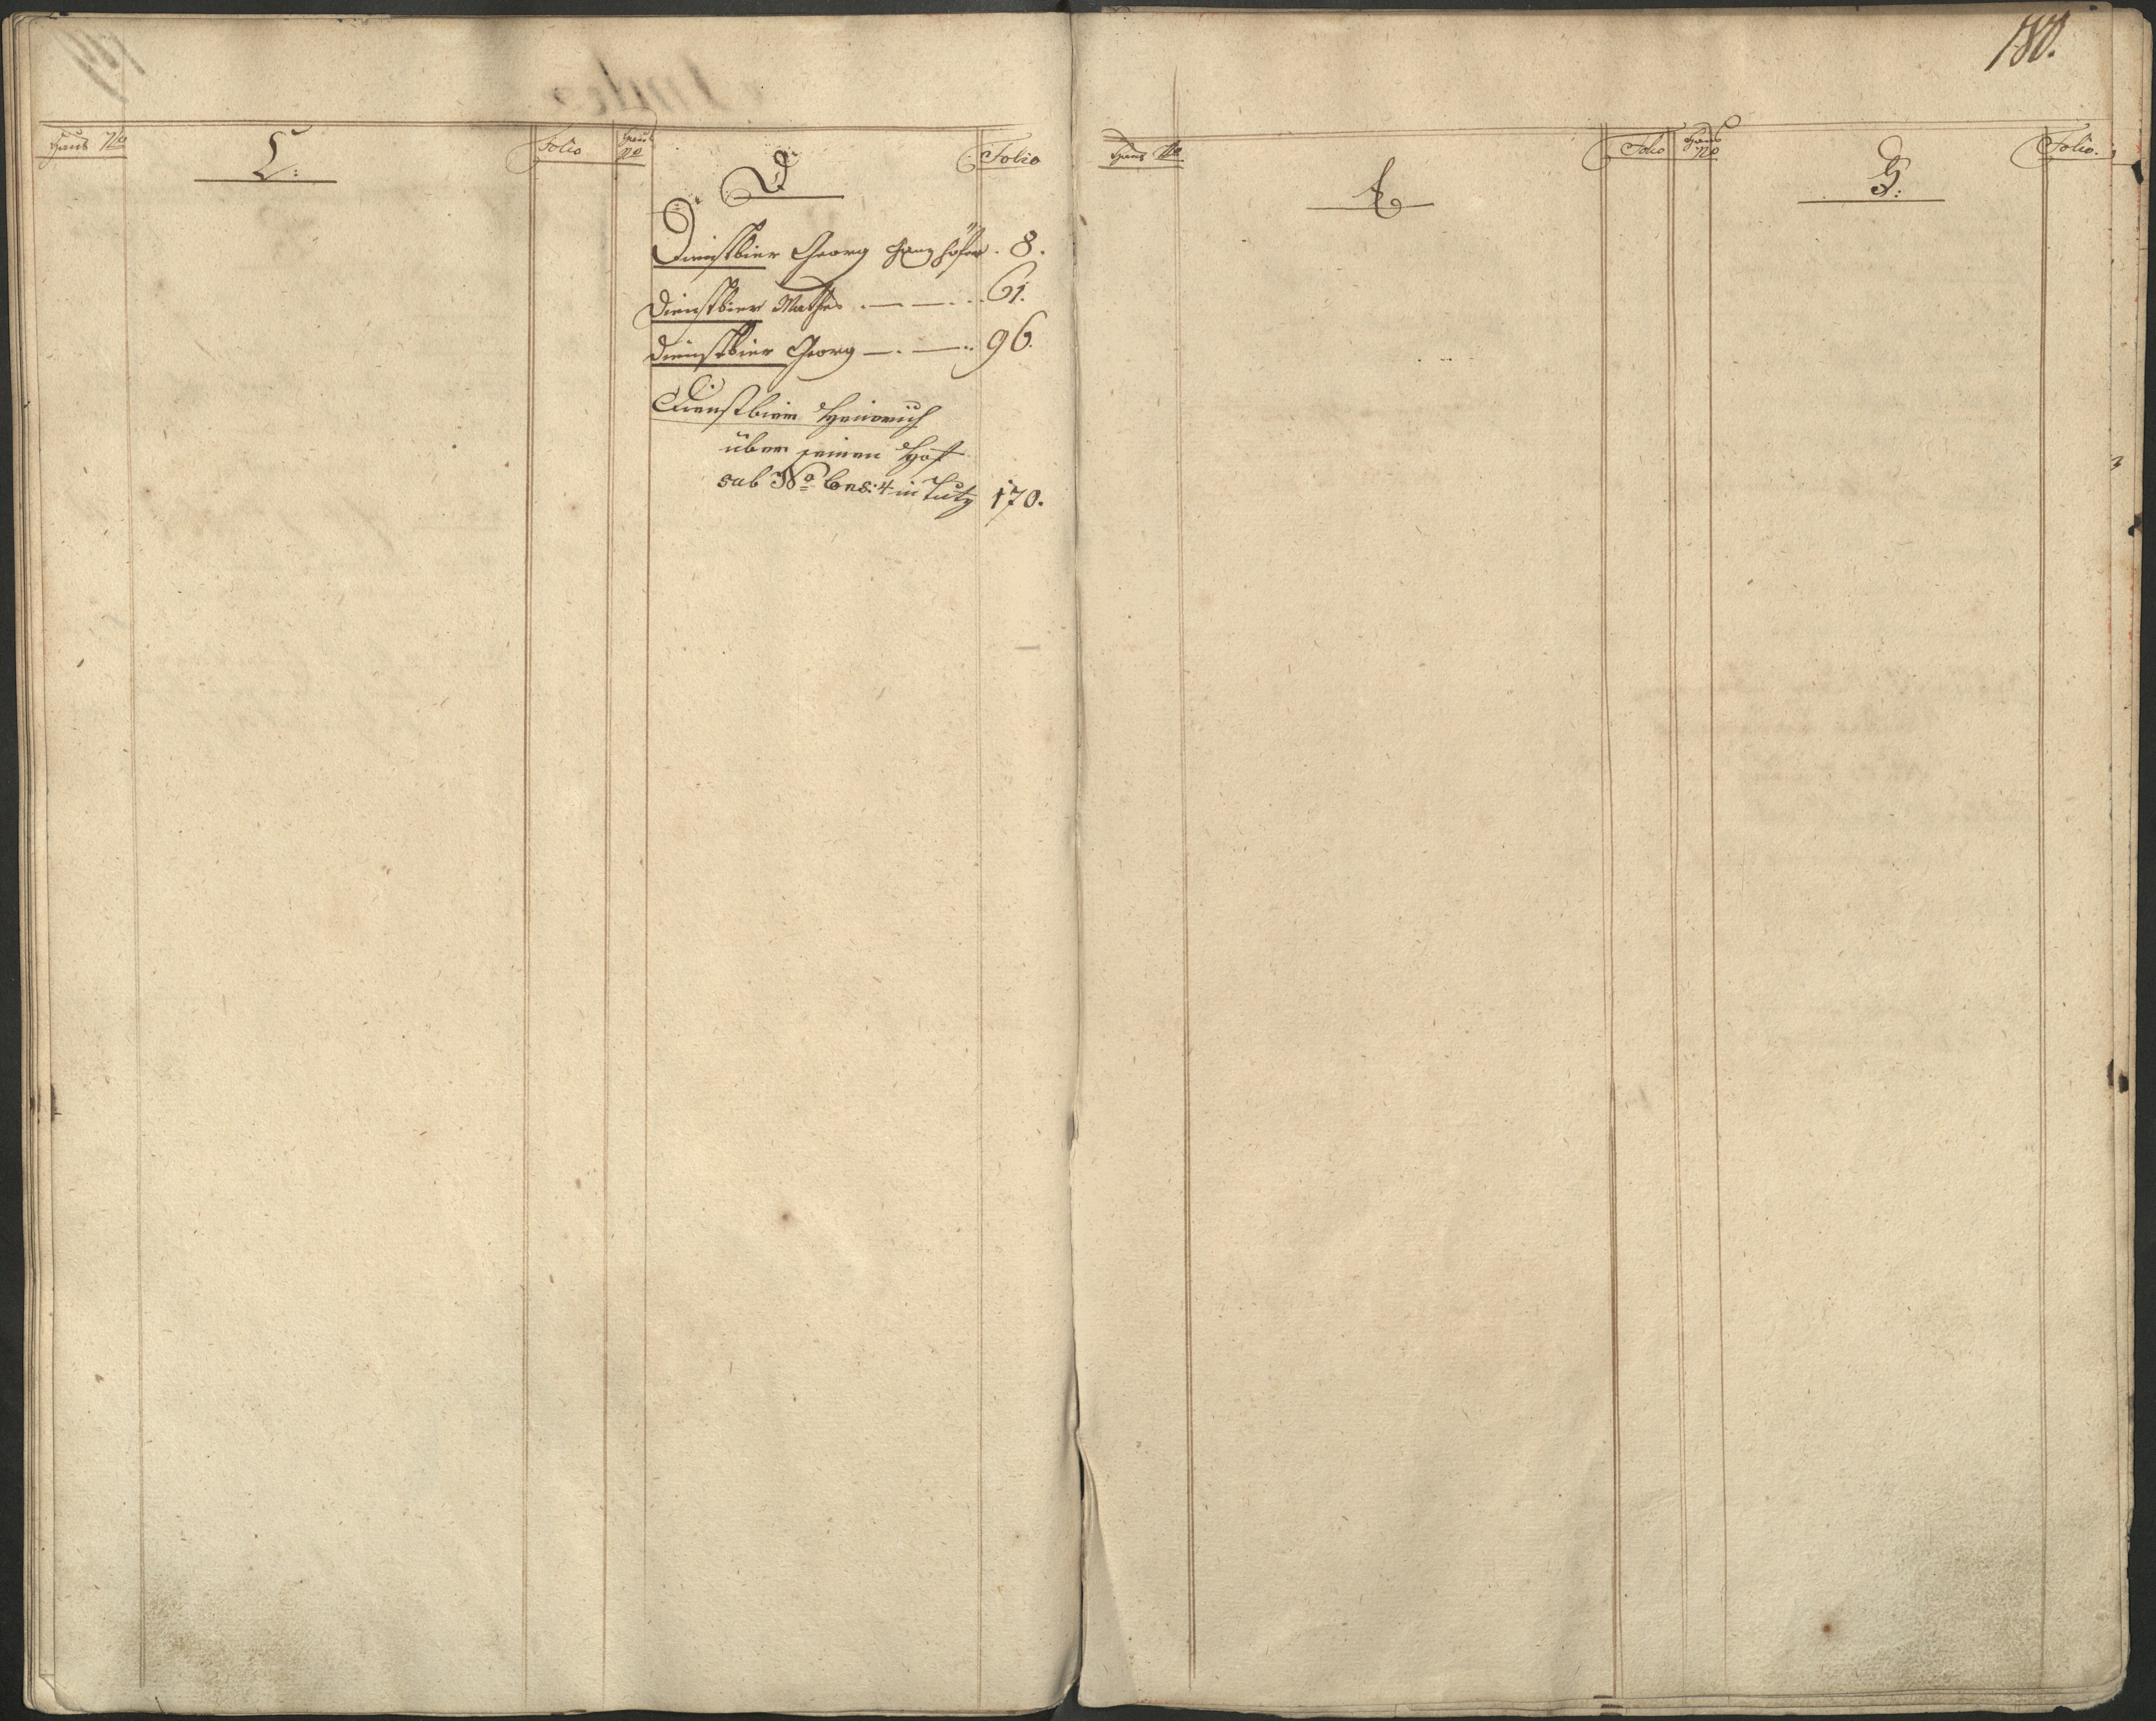 180.
Haus No
C:
Folio
Haus
No
D
Folio
Dienstbier Georg Ganzhöfer . 8.
Dienstbier Mathes . — — . . 61.
Dienstbier Georg — . — . . 96.
Dienstbier Heinrich
über seinen Hof
sub No Cons: 4 in Lutz 170.
Haus No
Folio
Haus
No
G:
Folio.